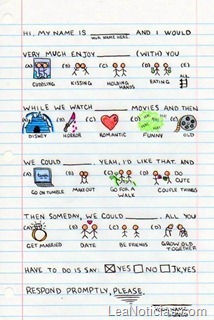 HI, MY NAME IS ________ AND I WOULD
YOUR NAME HERE.
VERY MUCH ENJOY ______ (WITH) YOU
(A) (B) (C) (D) (E)
CUDDLING KISSING HOLDING HANDS EATING
WHILE WE WATCH ______ MOVIES AND THEN
(A) (B) (C) (D) (E)
DISNEY HORROR ROMANTIC FUNNY OLD
WE COULD ______. YEAH, I'D LIKE THAT. AND
(A) (B) (C) (D)
GO ON TUMBLR MAKEOUT GO FOR A WALK DO CUTE COUPLE THINGS
THEN SOMEDAY, WE COULD ______. ALL YOU
(A) (B) (C) (D)
GET MARRIED DATE BE FRIENDS GROW OLD TOGETHER
HAVE TO DO IS SAY: YES NO JK, YES
RESPOND PROMPTLY, PLEASE.
www.LeaNoticias.com